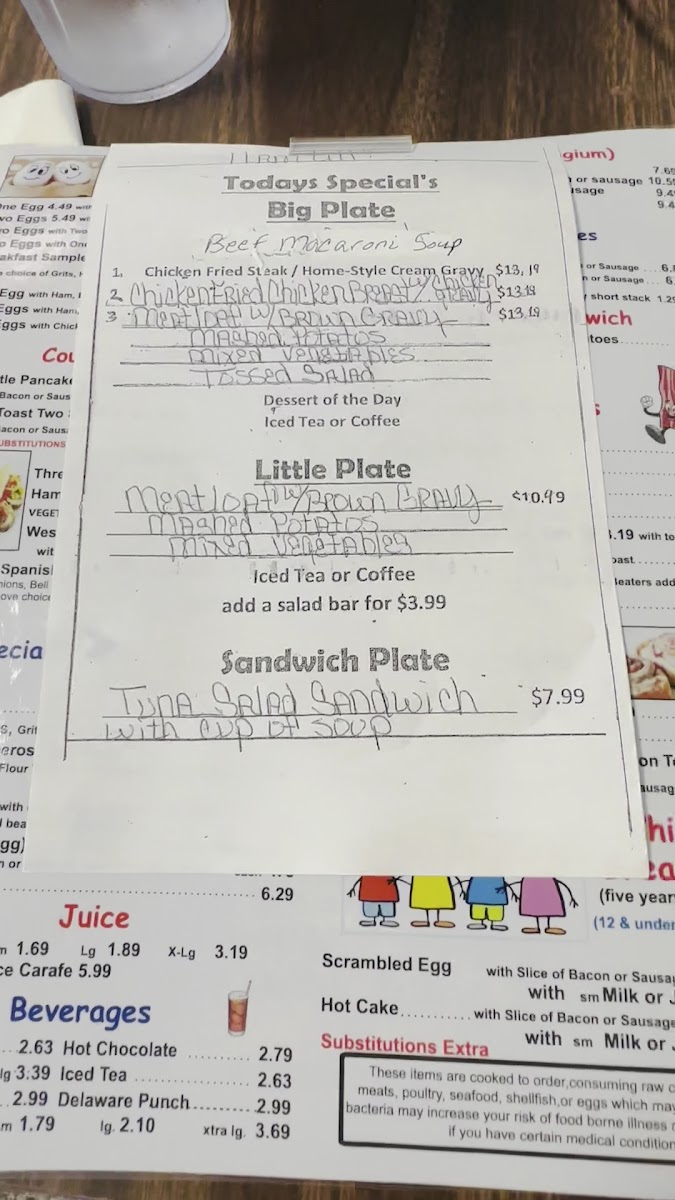 Todays Special's
Big Plate
Beef Macaroni Soup
1. Chicken Fried Steak / Home-Style Cream Gravy $13,19
2 Chicken Fried Chicken Breast w/ Chicken Gravy $13.19
3 Meatloaf w/ Brown Gravy $13.19
Mashed Potatos
Mixed Vegetables
Tossed Salad
Dessert of the Day
Iced Tea or Coffee
Little Plate
Meatloaf w/Brown Gravy $10.99
Mashed Potatos
Mixed Vegetables
Iced Tea or Coffee
add a salad bar for $3.99
Sandwich Plate
Tuna Salad Sandwich $7.99
with cup of soup
One Egg 4.49 with
Eggs 5.49
Eggs with Two
Eggs with One
choice of Grits,
Egg with Ham,
Eggs with Ham,
Eggs with
Pancake
Bacon or
Toast Two
SUBSTITUTIONS
Ham
with
Flour
with
or sausage 10.5
or Sausage
or Sausage
short stack 1.29
toes
.19 with
6.29
Juice
1.69 Lg 1.89 X-Lg 3.19
Carafe 5.99
Beverages
2.63 Hot Chocolate 2.79
lg 3.39 Iced Tea 2.63
2.99 Delaware Punch 2.99
1.79 lg. 2.10 xtra lg. 3.69
(five year
(12 & under
Scrambled Egg with Slice of Bacon or
with sm Milk or
Hot Cake with Slice of Bacon or Sausage
with sm Milk or
Substitutions Extra
These items are cooked to order,consuming raw
meats, poultry, seafood, shellfish,or eggs which may
bacteria may increase your risk of food borne illness
if you have certain medical condition